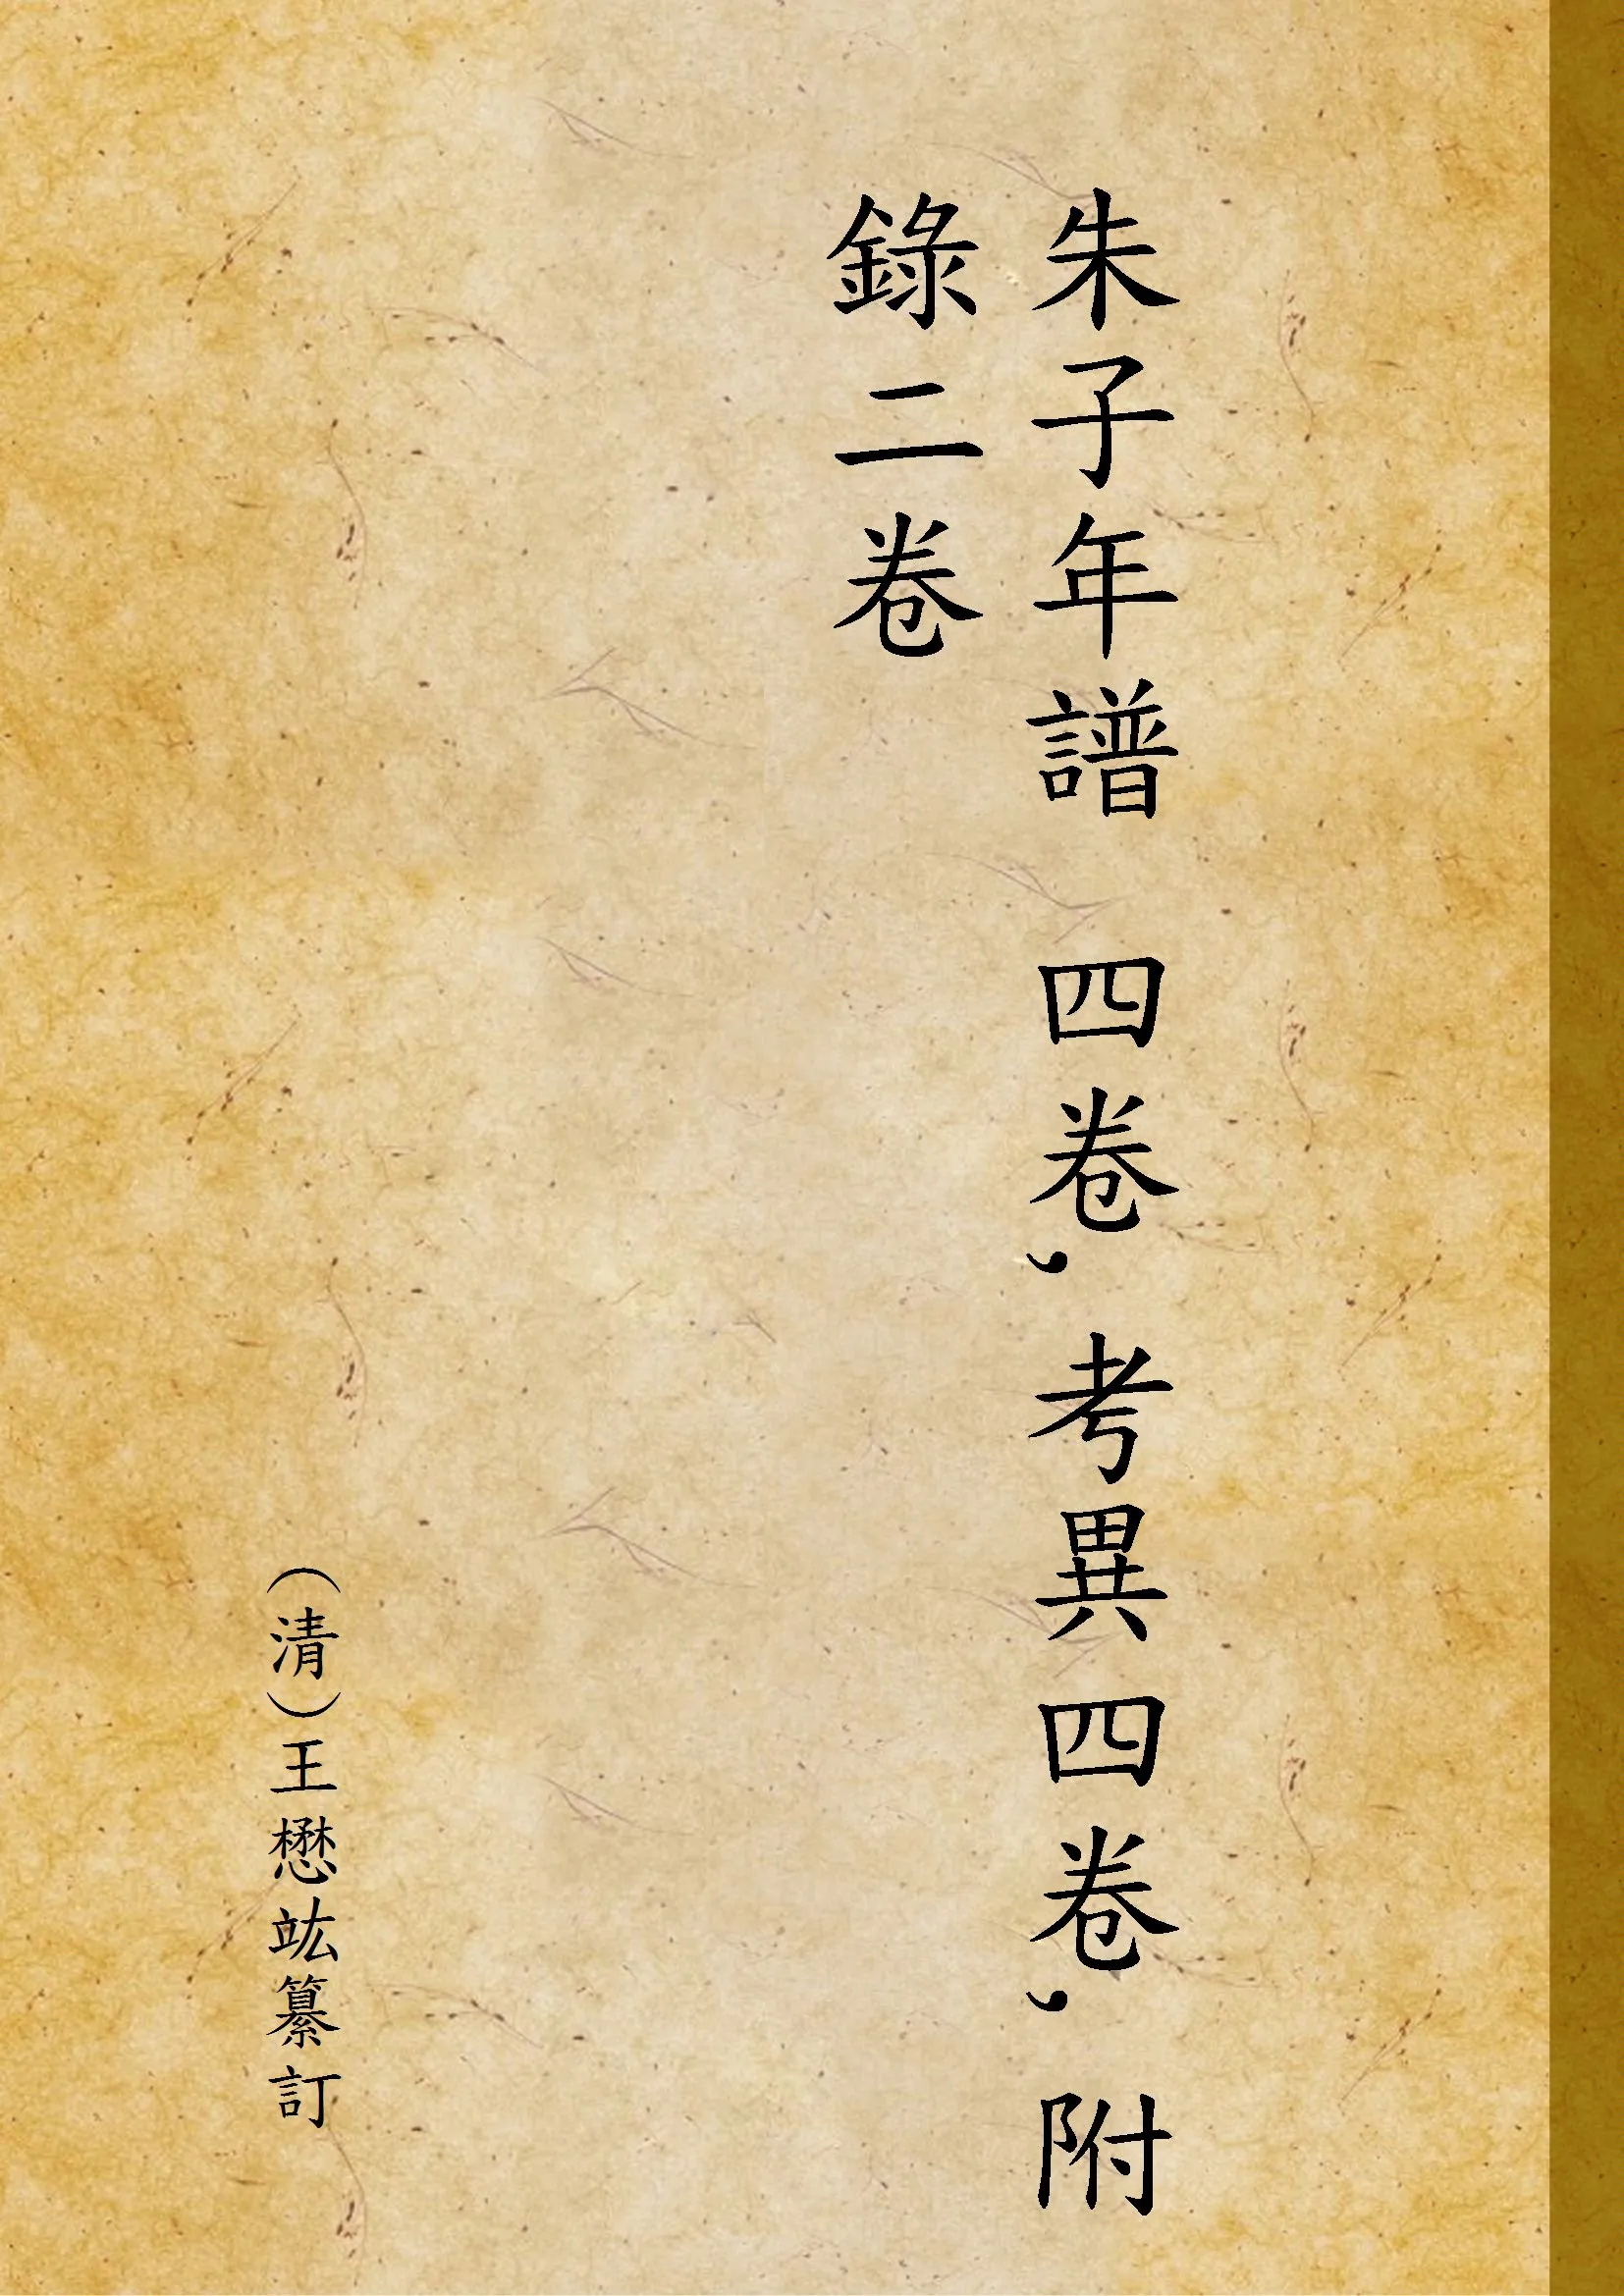 朱子年譜 四卷, 考異四卷, 附
錄二卷
(清)王懋竑纂訂